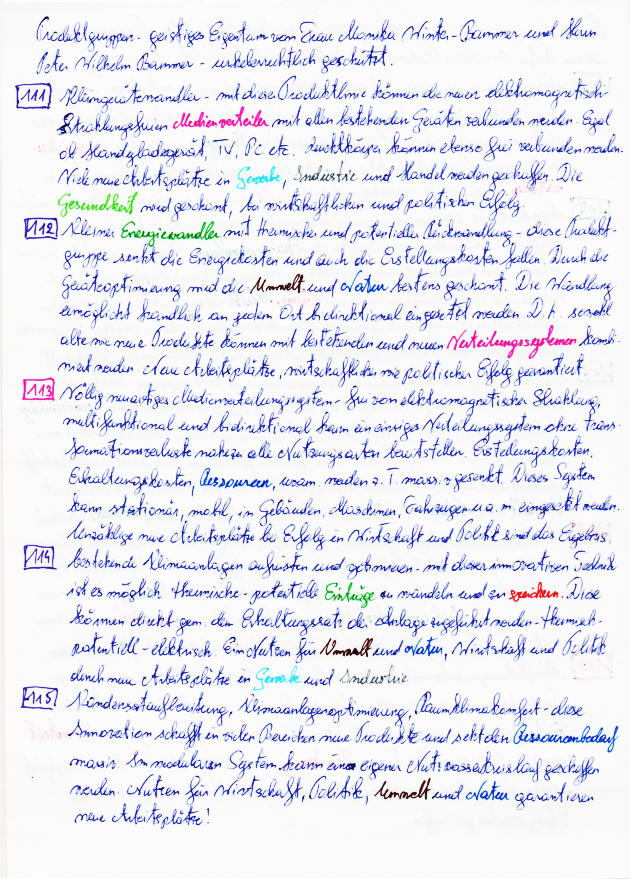 Produktgruppen - geistiges Eigentum von Frau Monika Winter-Bammer und Herrn
Peter Wilhelm Bammer - urheberrechtlich geschützt.
111 Kleingerätewandler - mit dieser Produktlinie können die neuen elektromagnetisch-
strahlungsfreien Medienverteiler mit allen bestehenden Geräten verbunden werden. Egal
ob Handyladegerät, TV, PC etc. Leuchtkörper können ebenso frei verbunden werden.
Viele neue Arbeitsplätze in Gewerbe, Industrie und Handel werden geschaffen. Die
Gesundheit wird geschont, bei wirtschaftlichen und politischen Erfolg.
112 Kleiner Energiewandler mit thermischer und potentieller Rückwandlung - diese Produkt-
gruppe senkt die Energiekosten und auch die Erstellungskosten fallen. Durch die
Geräteoptimierung wird die Umwelt und Natur bestens geschont. Die Wandlung
ermöglicht handlich an jedem Ort bidirektional eingesetzt werden D.h. sowohl
alte wie neue Produkte können mit bestehenden und neuen Verteilungssystemen kombi-
niert werden Neue Arbeitsplätze, wirtschaftlicher wie politischer Erfolg garantiert.
113 Völlig neuartiges Medienverteilungssystem - frei von elektromagnetischer Strahlung,
multifunktional und bidirektional kann ein einziges Verteilungssystem ohne Trans-
formationsverluste nahezu alle Nutzungsarten bereitstellen. Erstellungskosten,
Erhaltungskosten, Ressourcen, usw. werden z. T massiv gesenkt. Dieses System
kann stationär, mobil, in Gebäuden, Maschinen, Fahrzeugen u. a. m. eingesetzt werden.
Unzählige neue Arbeitsplätze bei Erfolg in Wirtschaft und Politik sind das Ergebnis.
114 bestehende Klimaanlagen aufrüsten und optimieren - mit dieser innovativen Technik
ist es möglich thermische - potentielle Einträge zu wandeln und zu speichern. Diese
können direkt gem. dem Erhaltungssatz der Anlage zugeführt werden - thermisch -
potentiell - elektrisch. Ein Nutzen für Umwelt und Natur, Wirtschaft und Politik
durch neue Arbeitsplätze in Gewerbe und Industrie
115 Kondensataufbereitung, Klimaanlagenoptimierung, Raumklimakomfort - diese
Innovation schafft in vielen Bereichen neue Produkte und senkt den Ressourcenbedarf
massiv. Im modularen System kann ein eigener Nutzwasserkreislauf geschaffen
werden. Nutzen für Wirtschaft, Politik, Umwelt und Natur garantieren
neue Arbeitsplätze!